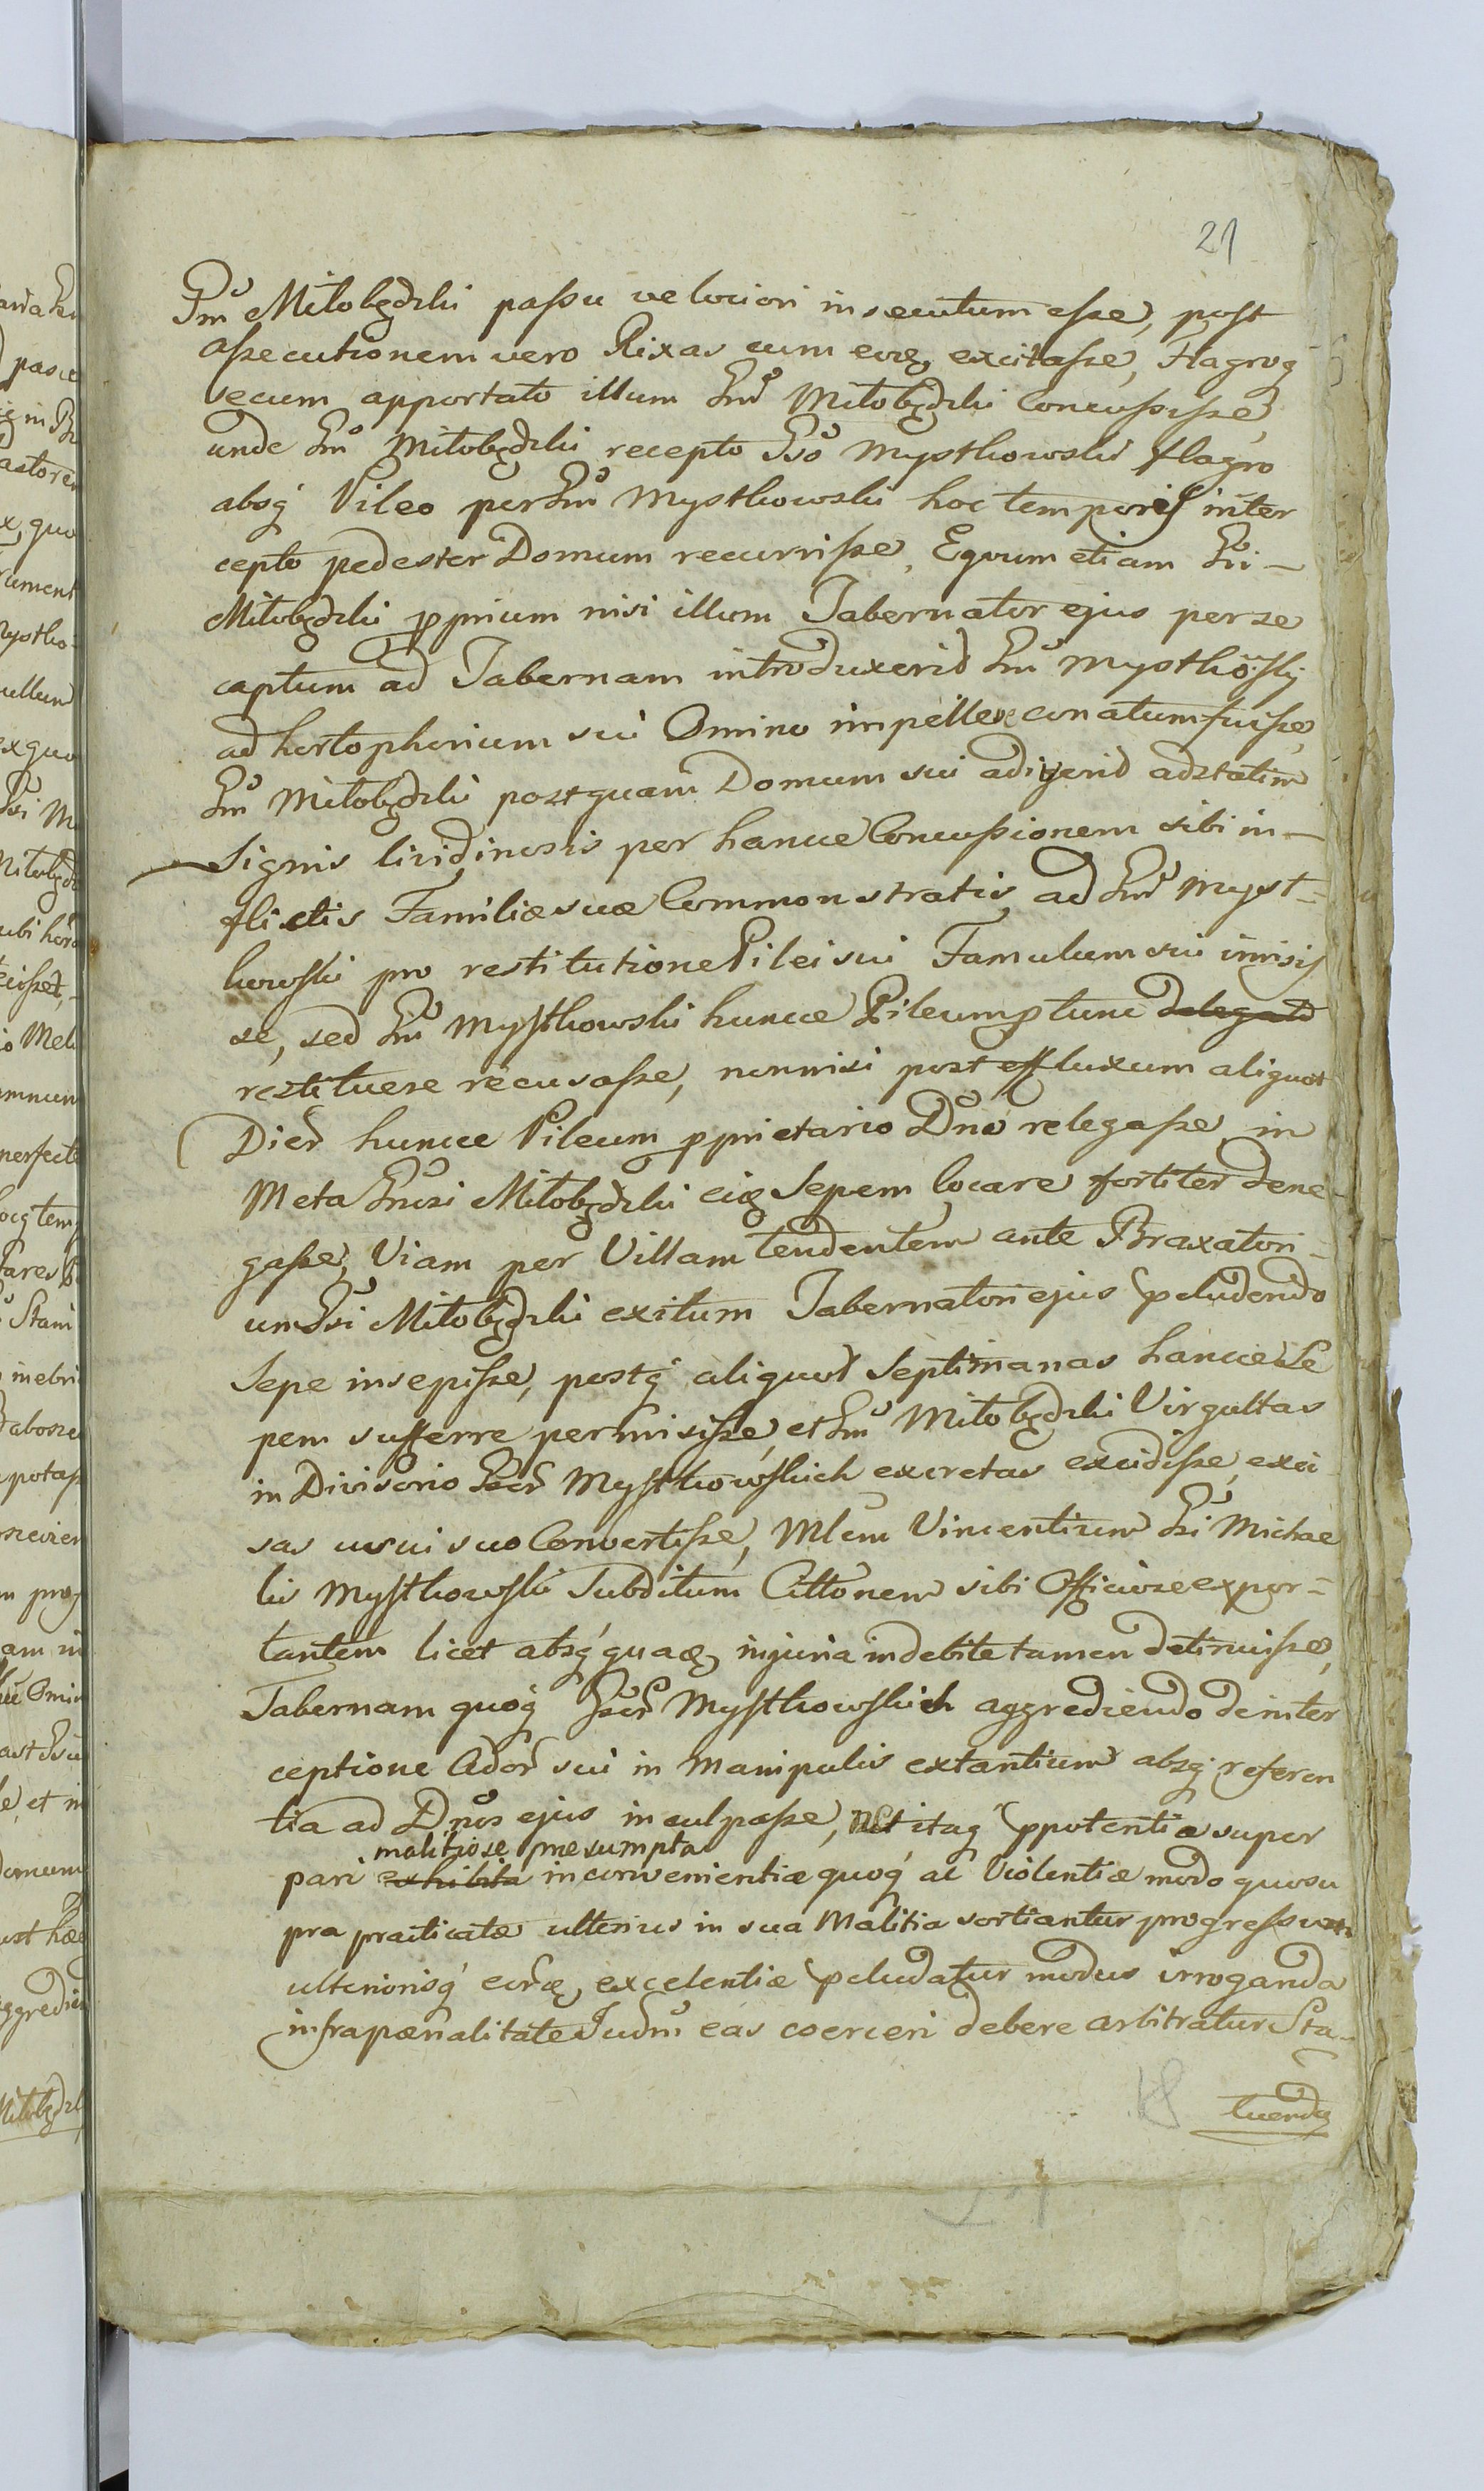 21
Gnũ Miłobędzki passu velociori insecutum esse, post
assecutionem vero Rixas cum eoq excitasse, Flagroq
secum apportato illum Gnũ Miłobędzki Concussisse,
unde Gnũ Miłobędzki recepto Gso Mystkowski flagro
absq Pileo per Gnũ Mystkowski hoc temporis inter
cepto pedester Domum recurrisse, Equum etiam Gsi –
Miłobędzki pprium nisi illum Tabernator ejus per se
captum ad Tabernam introduxerid Gnũ Mystkowski
ad hortopherium sui Omino impellere conatum fuisse,
Gnũ Miłobędzki postquam Domum sui adigerid adstatim
Signis lividinosis per hancce Concussionem sibi in –
flictis Familiæ suæ Commonstratis, ad Gnũ Myst=
kowski pro restitutione Pilei sui Famulum sui imisis
se, sed Gnũ Mystkowski huncce Pileum ptunc delegato
restituere recusasse, nonnisi post effluxum aliquot
Dier huncce Pileum pprietario Dno relegasse, in
Meta Gnisi Miłobędzki eiq Sepem locare fortiter dene
gasse, Viam per Villam tendentem ante Braxatori –
um Gsi Miłobędzki exitum Tabernatori ejus pcludendo
Sepe insepisse, postq aliquot Septimanas hancce Se
pem sufferre permisisse, et Gnũ Miłobędzki Virgultas
in Divisorio Gser Mystkowskich excretas excidisse, exci
sas usui suo Convertisse, Mlem Vincentium Gsi Michae
lis Mystkowski Subditum Cittonem sibi Officiose expor=
tantem licet absq quaq injuria indebite tamen detinuisse,
Tabernam quoq Gser Mystkowskich aggrediendo de inter
ceptione Ador sui in Manipulis extantium absq referen
tia ad Dnos ejus inculpasse, Ut itaq ppotentia super
malitiose presumpta
pari exhibita inconvenientiæ quoq ac Violentiæ modo quo su
pra practicatæ ulterius in sua Malitia sortiantur progressum
ulteriorisq eorq, excelentiæ pcludatur modus irroganda
infra pænalitate Judm eas coerceri debere arbitratur Sta –
tuendo